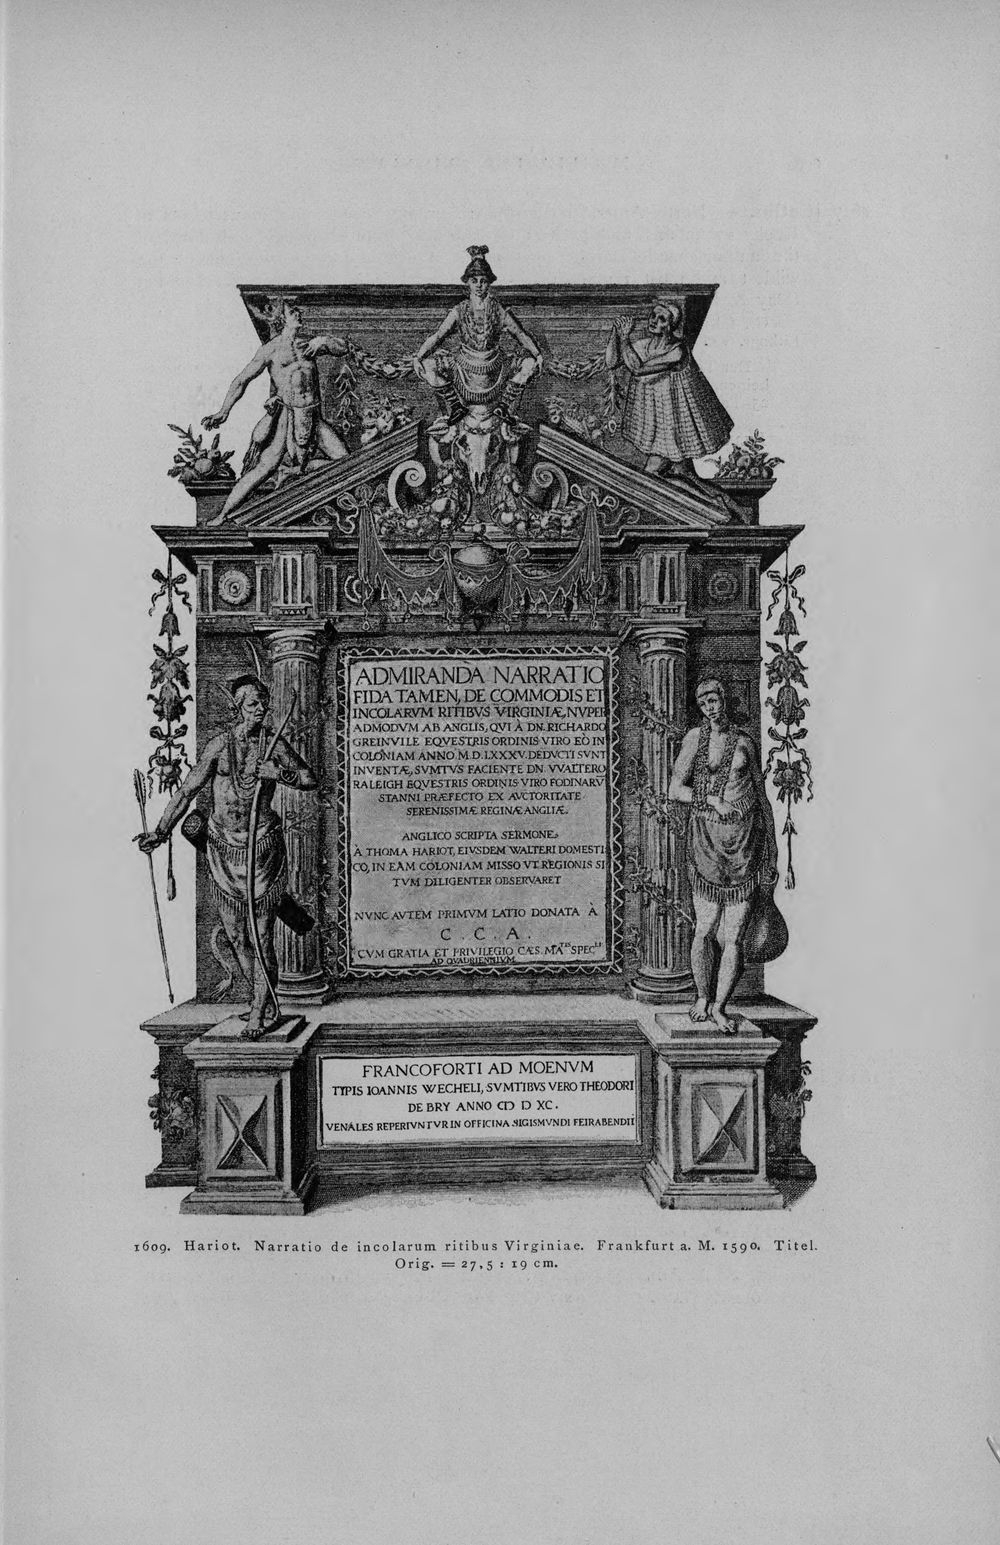 ADMIRANDA NARRATIO
FIDA TAMEN, DE COMMODIS ET
INCOLARVM RITIBVS VIRGINIÆ, NVPER
ADMODVM AB ANGLIS, QVI À DN. RICHARDO
GREINVILE EQVESTRIS ORDINIS VIRO EÒ IN
COLONIAM ANNO M.D.LXXXV. DEDVCTI SVNT
INVENTÆ, SVMTVS FACIENTE DN. VVALTERO
RALEIGH EQVESTRIS ORDINIS VIRO FODINARV
STANNI PRÆFECTO EX AVCTORITATE
SERENISSIMÆ REGINÆ ANGLIÆ.
ANGLICO SCRIPTA SERMONE,
À THOMA HARIOT, EIVSDEM WALTERI DOMESTI
CO, IN EAM COLONIAM MISSO VT REGIONIS SI
TVM DILIGENTER OBSERVARET
NVNC AVTEM PRIMVM LATIO DONATA À
C. C. A.
CVM GRATIA ET PRIVILEGIO CÆS. MA^TIS SPEC^LI
AD QVADRIENNIVM
FRANCOFORTI AD MOENVM
TYPIS IOANNIS WECHELI, SVMTIBVS VERO THEODORI
DE BRY ANNO CIↃ D XC.
VENALES REPERIVNTVR IN OFFICINA SIGISMVNDI FEIRABENDII
1609. Hariot. Narratio de incolarum ritibus Virginiae. Frankfurt a. M. 1590. Titel.
Orig. = 27,5 : 19 cm.